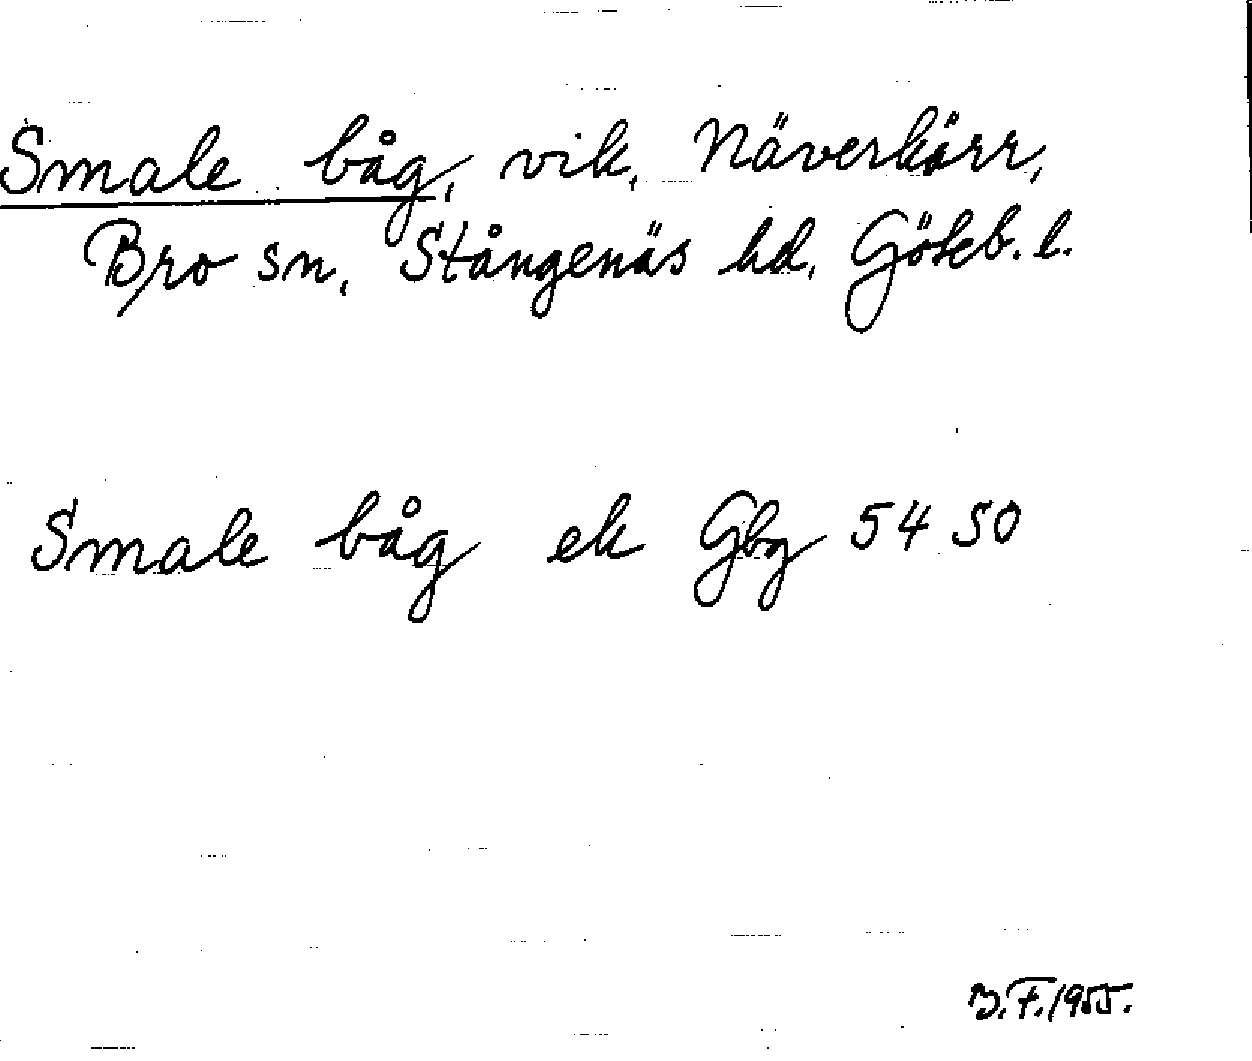 Smale båg, vik, Näverkärr,
Bro sn, Stångenäs hd, Göteb. l.
Smale båg ek Gbg 54 50
B.F. 1955.